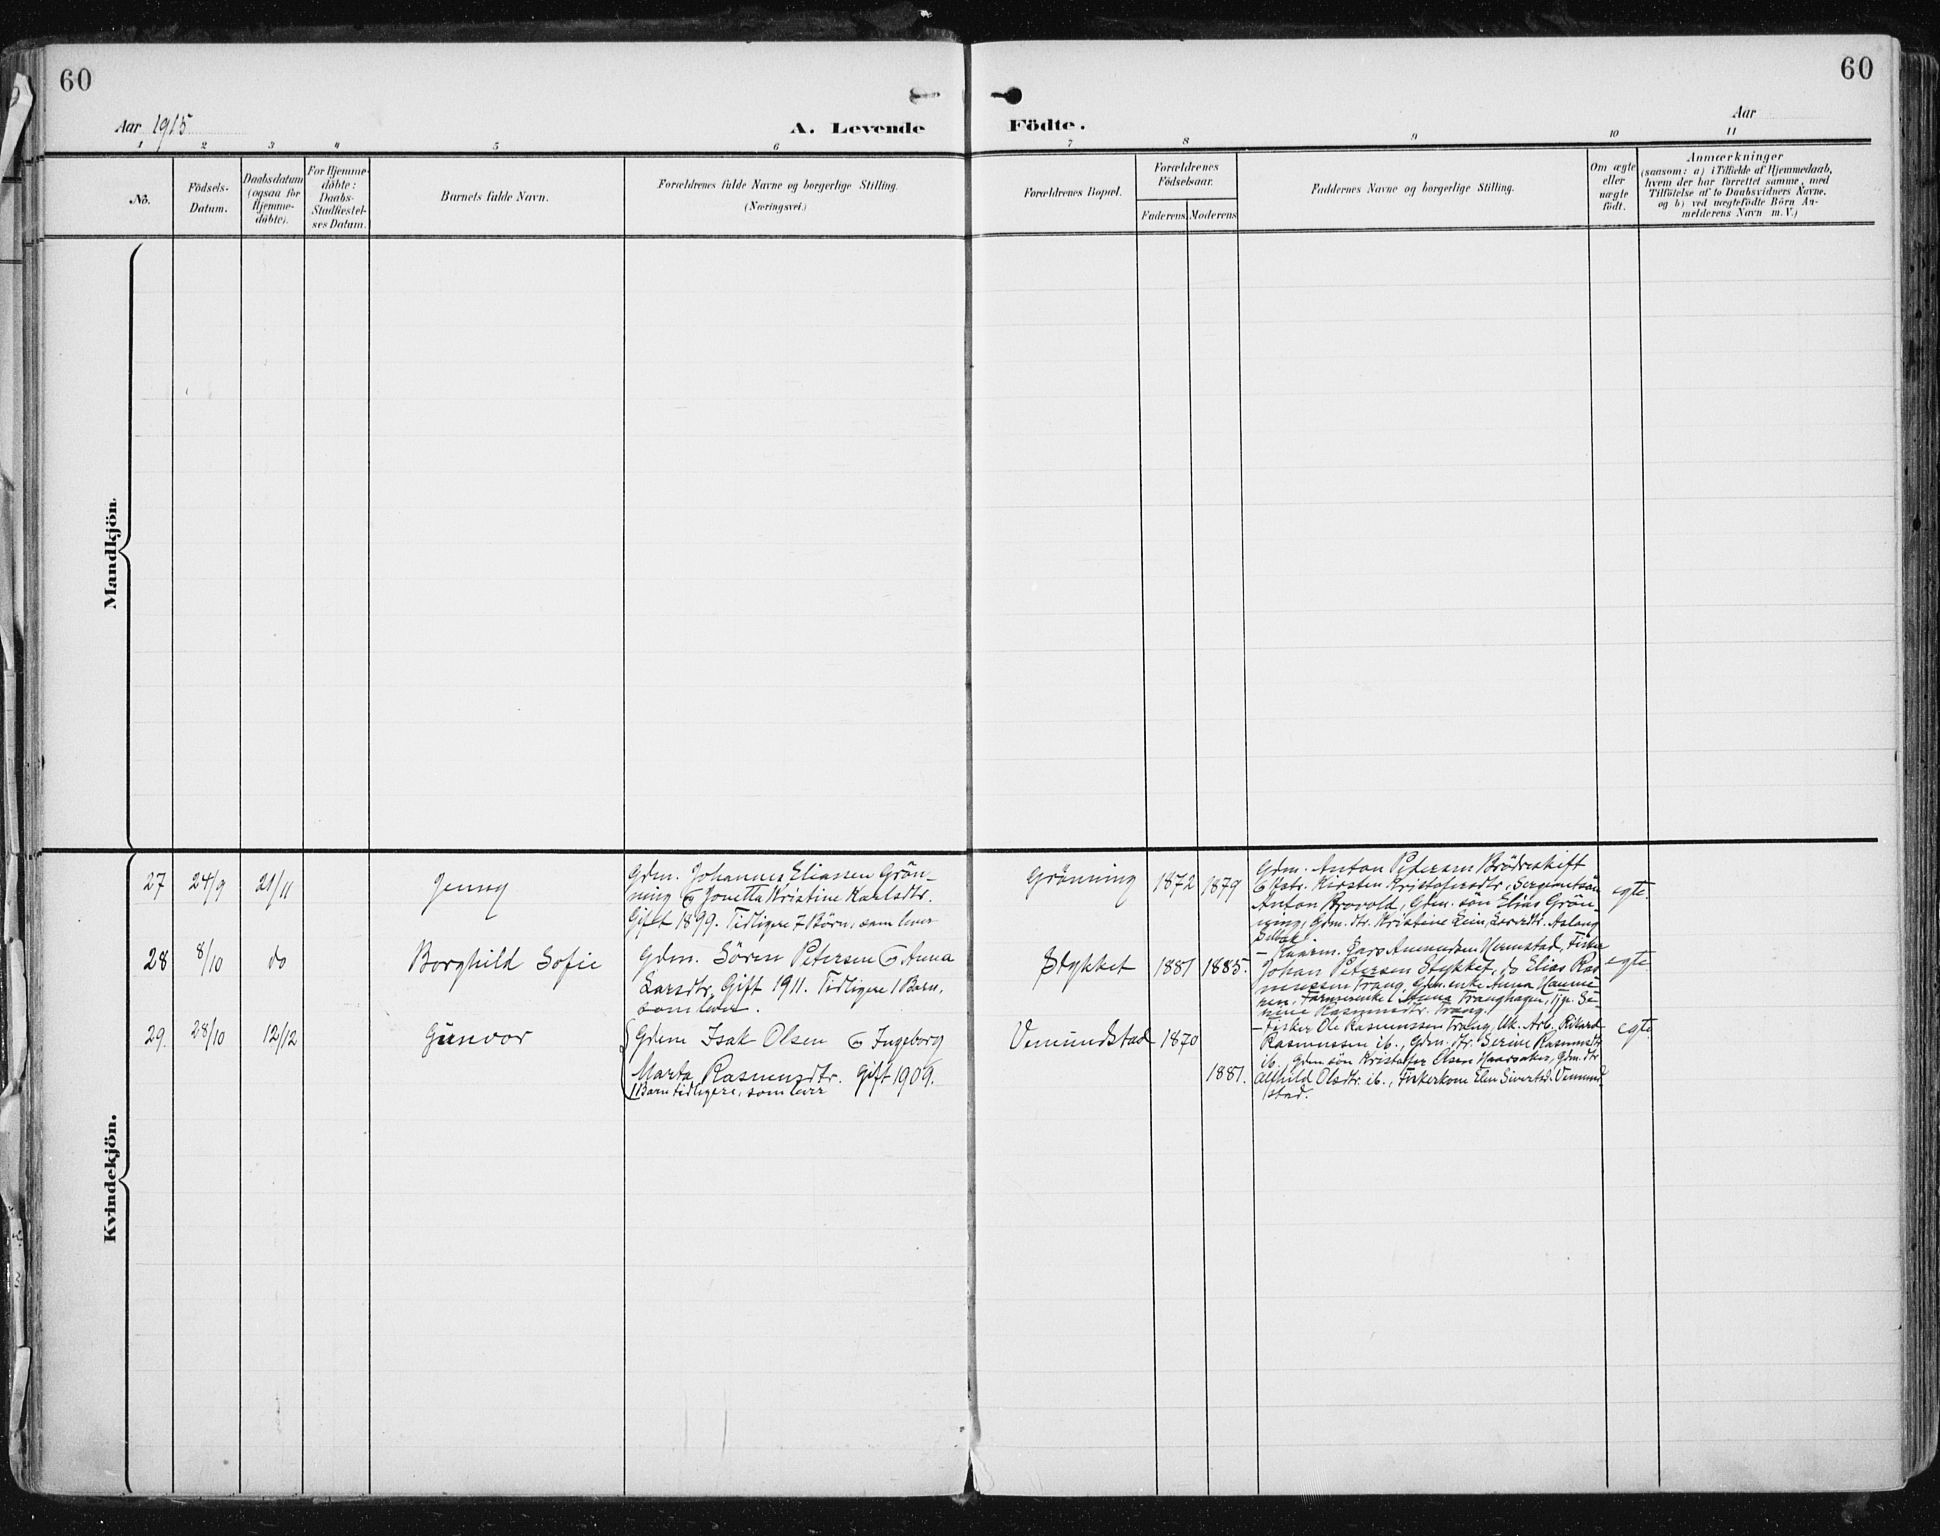 60
60
Aar 1915
A. Levende Födte.
Aar
1 2 3 4 5 6 7 8 9 10 11
No.
Födsels-
Datum.
Daabsdatum
(ogsaa for
Hjemme-
döbte).
For Hjemme-
döbte:
Daabs-
Stadfæstel-
ses Datum.
Barnets fulde Navn.
Forældrenes fulde Navne og borgerlige Stilling.
(Næringsvei.)
Forældrenes Bopæl.
Forældrenes
Födselsaar.
Faderens Moderens
Faddernes Navne og borgerlige Stilling.
Om ægte
eller
uægte
födt.
Anmærkninger
(saasom: a) i Tilfælde af Hjemmedaab,
hvem der har forrettet samme, med
Tilföielse af to Daabsvidners Navne,
og b) ved uægtefödte Börn An-
melderens Navn m. V.)
Mandkjön.
Kvindekjön.
27 24/9 21/11 Jenny
Gdm. Johannes Eliassen Grön-
ning & Jonetta Kristine Karlsdtr.
Gift 1899. Tidligere 7 Børn, som lever
Grönning 1872 1879
Gdm. Anton Petersen Brödreskift
& Hstr. Kirsten Kristofersdtr, Sergeantsön
Anton Brovold, Gdm. sön Elias Grön-
ning, Gdm. dtr. Kristine Lein, Aslaug
Selbæk
egte.
28 8/10 do Borghild Sofie
Gdm. Sören Petersen & Anna
Larsdtr. Gift 1911. Tidligere 1 Barn,
som lever.
Stykket 1881 1885.
- Kaarm. Lars Amundsen Hermstad, Fisker
Johan Petersen Stykket, do Elias Ras-
mussen Trang, Gdm. enke Anna
Anna Tranghagen, Tjp. Se-
rine Rasmusdtr. Trang.
egte
29. 28/10 12/12 Gunvor
Gdm Isak Olsen & Ingeborg
Marta Rasmusdtr. Gift 1909.
1 Barn tidligere, som lever
Vemundstad 1870
1881.
- Fisker Ole Rasmussen Trang, Uk. Arb. Rikard
Rasmussen ib., Gdm. dtr. Serine Rasmusdtr
ib. Gdm sön Kristofer Olsen Haarsaker, Gdm. dtr
Alfhild Olsdtr. ib., Fiskerkone Elen Sivertsd. Vemund-
stad.
egte